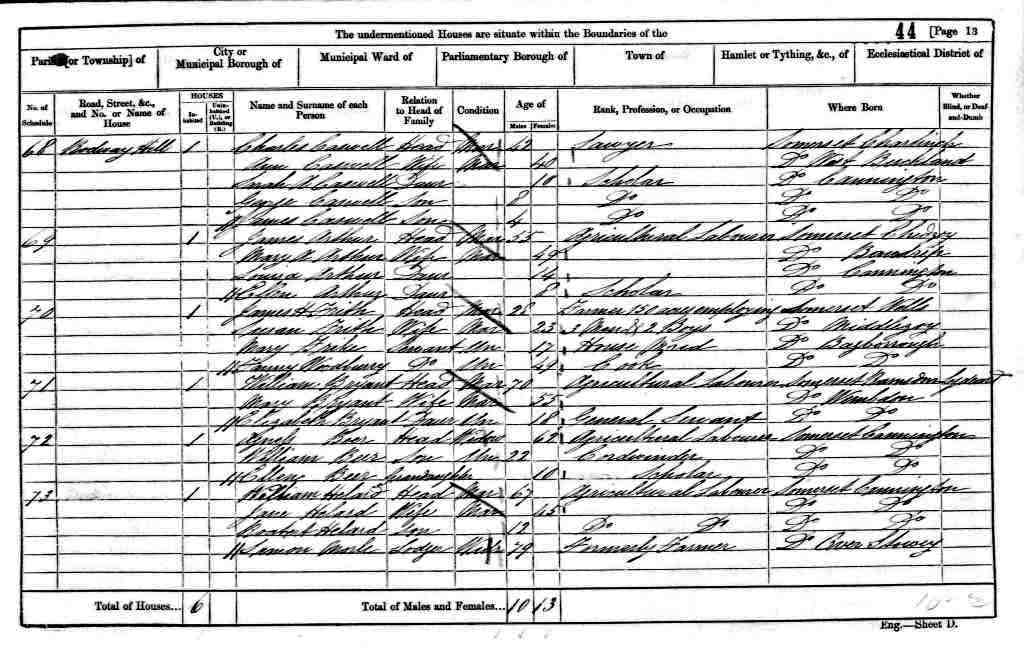 The undermentioned Houses are situate within the Boundaries of the 44 [Page 13
Parish [or Township] of City or Municipal Borough of Municipal Ward of Parliamentary Borough of Town of Hamlet or Tything, &c., of Ecclesiastical District of
No. of Schedule Road, Street, &c., and No. or Name of House HOUSES Inhabited Uninhabited (U.), or Building (B.) Name and Surname of each Person Relation to Head of Family Condition Age of Males Females Rank, Profession, or Occupation Where Born Whether Blind, or Deaf-and-Dumb
68 Rodway Hill 1 Charles Caswell Head Mar 42 Sawyer Somerset
Ann Caswell Wife Mar 40 Do
Sarah A Caswell Daur 10 Scholar Do Cannington
George Caswell Son 8 Do Do Do
James Caswell Son 4 Do Do Do
69 1 James Arthur Head Mar 55 Agricultural Labourer Somerset Chedzoy
Mary A Arthur Wife Mar 49 Do Bawdrip
Louisa Arthur Daur 14 Do Cannington
Ellen Arthur Daur 8 Scholar Do Do
70 1 James Frith Head Mar 28 Farmer 150 acres employing Somerset Wells
Susan Frith Wife Mar 23 3 Men & 2 Boys Do Middlezoy
Mary Servant Un 17 House Maid Do Bagborough
Fanny Woodbury Do Un 49 Cook Do Do
71 1 William Bryant Head Mar 70 Agricultural Labourer Somerset Lydeard
Mary Bryant Wife Mar 55 Do Wembdon
Elizabeth Bryant Daur Un 18 General Servant Do Do
72 1 Beer Head Widow 62 Agricultural Labourer Somerset Cannington
William Beer Son Un 22 Cordwinder Do Do
Ellen Beer Grandaughter 10 Scholar Do Do
73 1 William Helard Head Mar 67 Agricultural Labourer Somerset Cannington
Jane Helard Wife Mar 65 Do Do
Robert Helard Son 12 Do Do Do Do
Simon Morle Lodger 79 Formerly Farmer Do Over Stowey
Total of Houses... 6 Total of Males and Females... 10 13
Eng.—Sheet D.